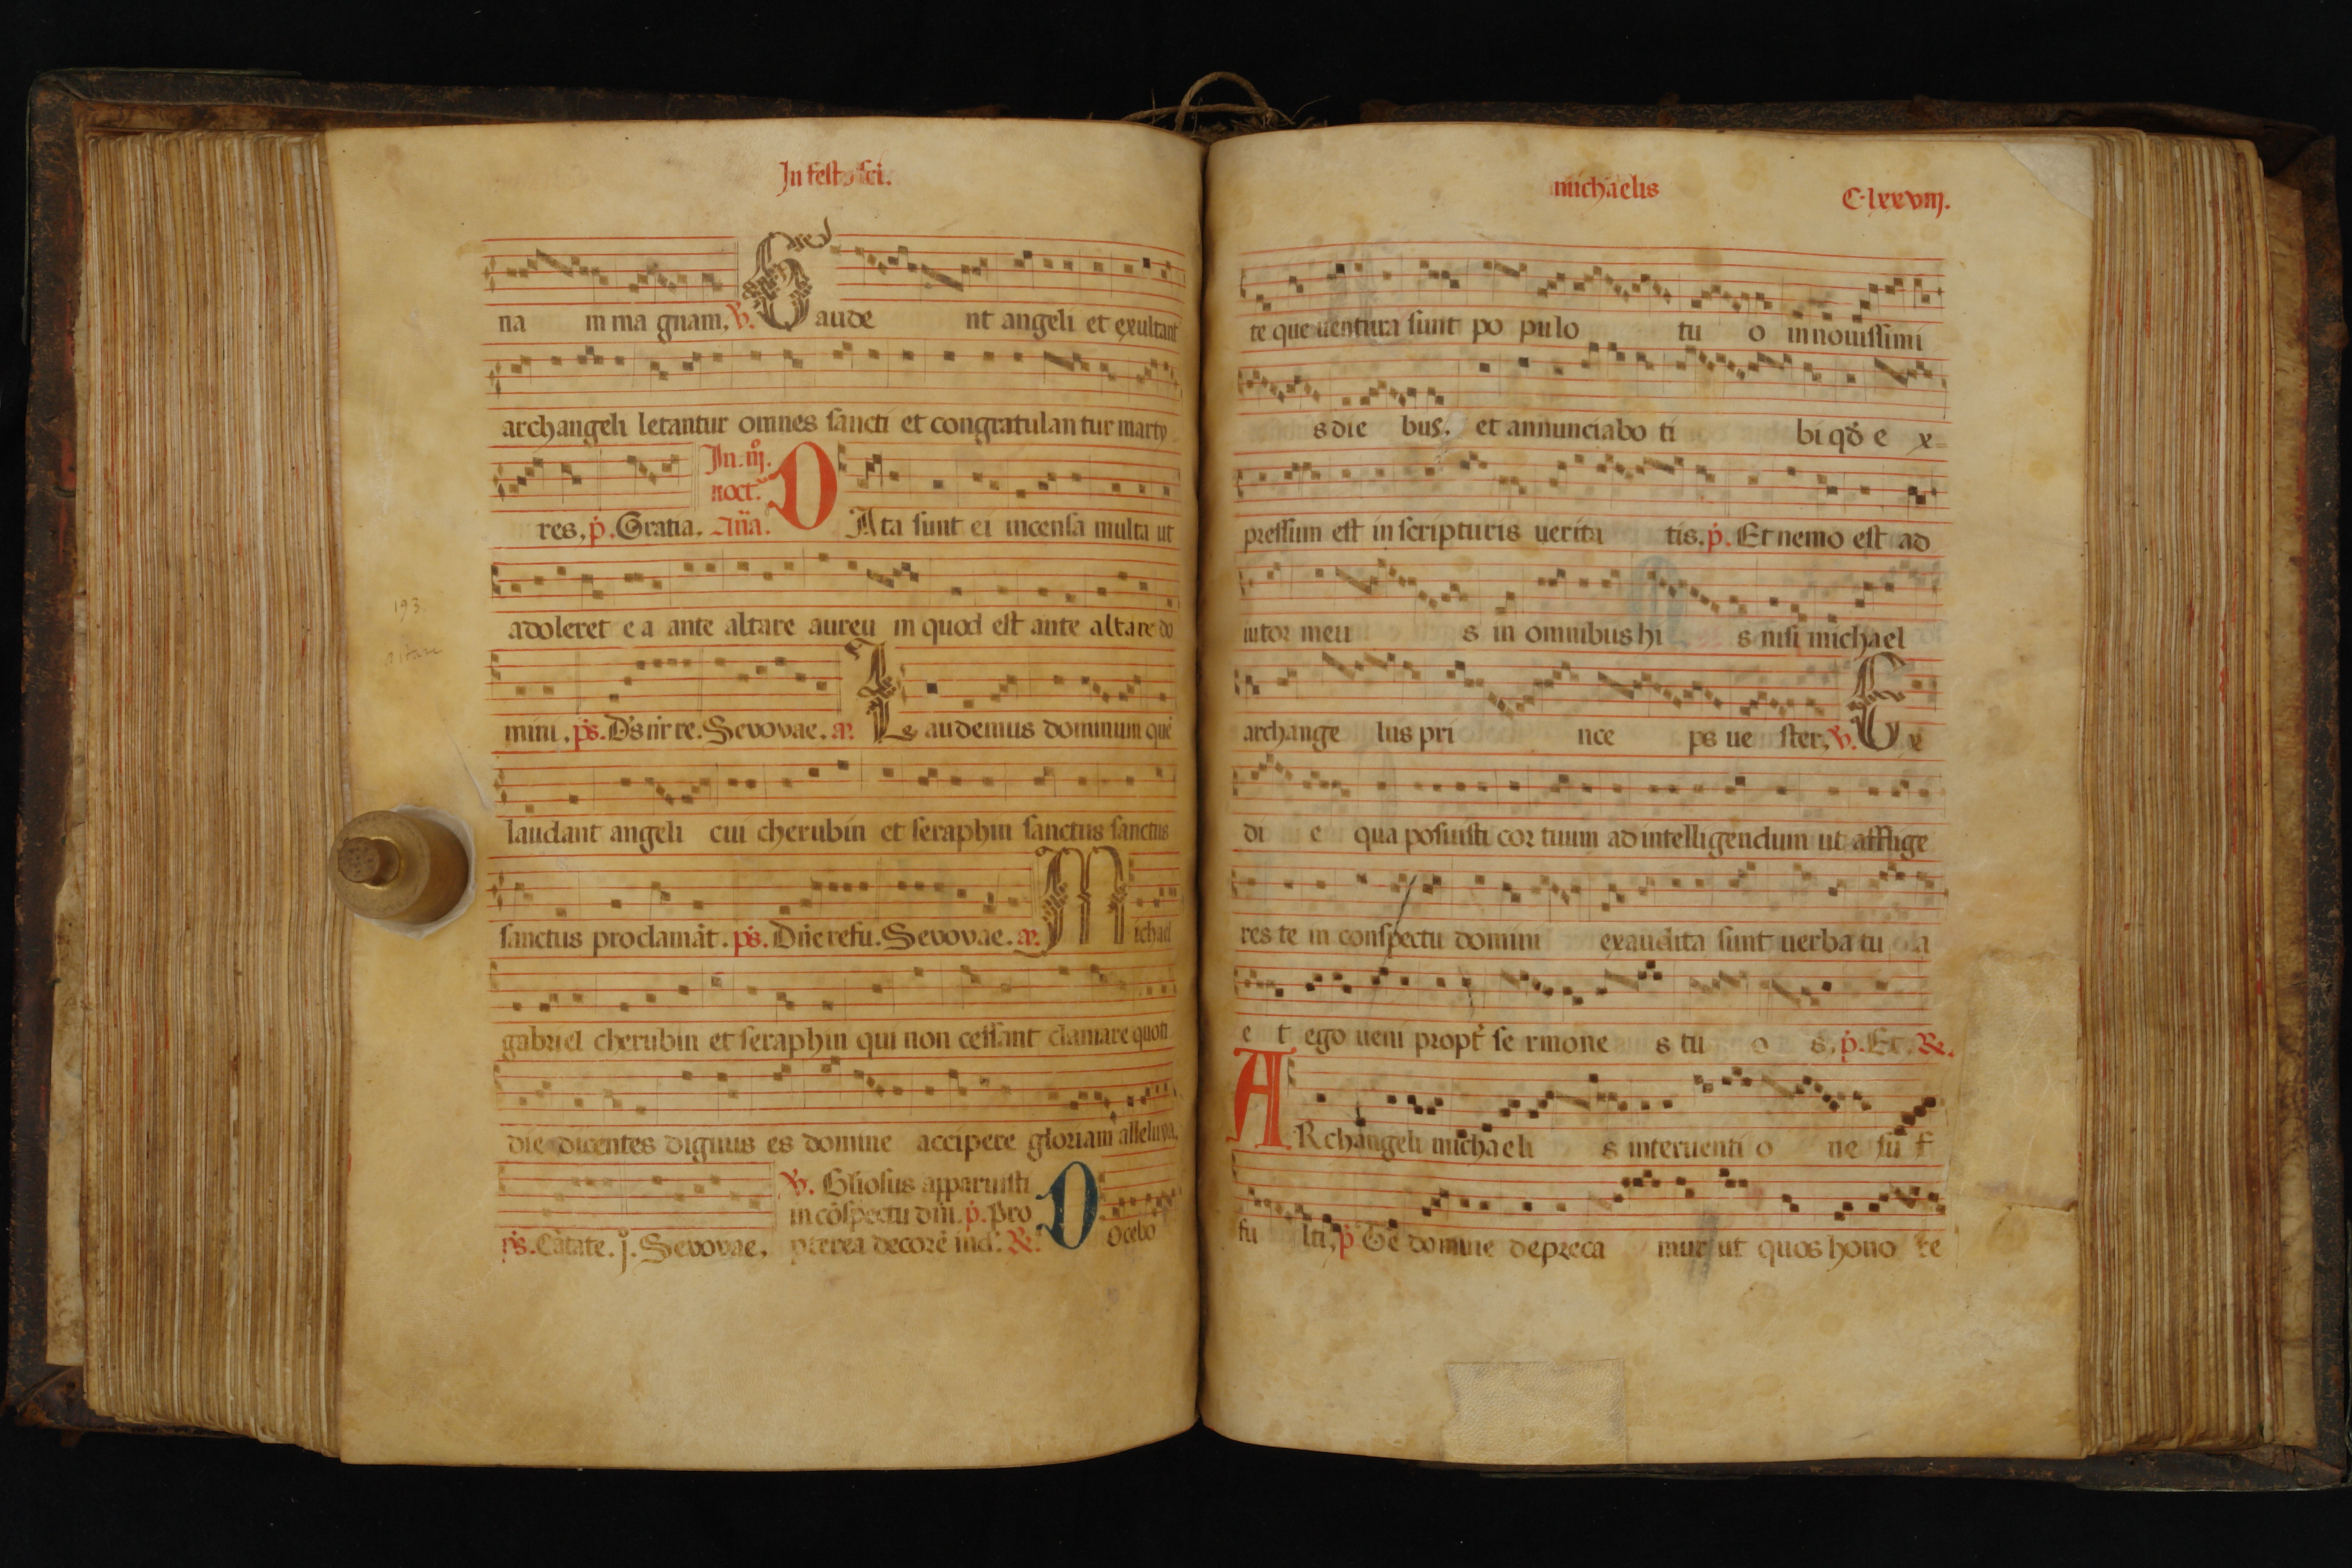 In festo sci.
na m ma gnam, ℣. Gaude nt angeli et exultant
archangeli letantur omnes sancti et congratulan tur marty
In. iij. noct.
res, p. Gratia. Aña. DAta sunt ei incensa multa ut
193.
adoleret e a ante altare aureu m quod est ante altare do
altare
mini. ps. Dns nr re. Sevovae. a. Laudemus dominum que
laudant angeli cui cherubin et seraphin sanctus sanctus
sanctus proclamāt. ps. Dñe refu. Sevovae. a. Michael
gabriel cherubin et seraphin qui non cessant clamare quoti
die dicentes dignus es domine accipere gloriam alleluya.
℣. Gliosus apparuisti
in cōspectu dm̄. p. Pro
ps. Cātate. j. Sevovae. pterea decorē ind. ℟. Docebo
michaelis
C.lxxviij.
te que uentura sunt po pulo tu o in nouissimi
s die bus. et annunciabo ti bi qd e x=
pressum est in scripturis uerita tis. p. Et nemo est ad
iutor meu s in omnibus hi s nisi michael
archange lus pri nce ps ue ster, ℣. Ex
di e qua posuisti cor tuum ad intelligendum ut afflige
res te in conspectu domini exaudita sunt uerba tu a
e t ego ueni propt se rmone s tu o s, p. Et. ℟.
ARchangeli michaeli s interuenti o ne su f
fu lti, p Te domine depreca mur ut quos hono re